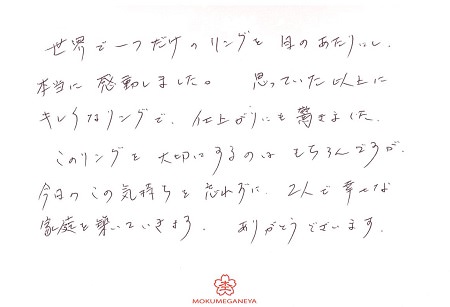 世界で一つだけのリングを目のあたりにし、
本当に感動しました。 思っていた以上に
キレイなリングで、仕上がりにも驚きました。
このリングを大切にするのはもちろんですが、
今日のこの気持ちを忘れずに、2人で幸せな
家庭を築いていきます。 ありがとうございます。
MOKUMEGANEYA